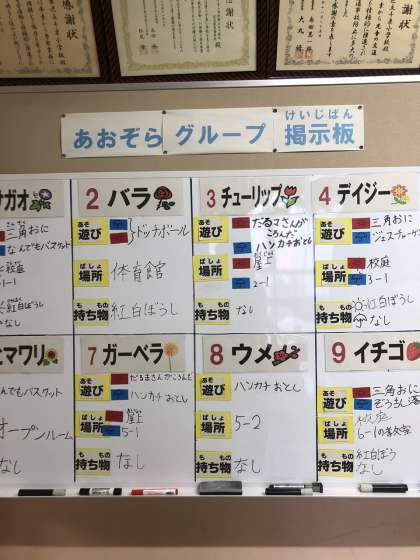 感謝状
感謝状
あおぞら グループ 掲示板
けいじばん
サガオ
三角おに
なんでもバスケット
校庭
紅白ぼうし
なし
2 バラ
あそ
遊び
ドッチボール
ばしょ
場所
体育館
も もの
持ち物
紅白ぼうし
3 チューリップ
あそ
遊び
だるまさんが
ころんだ
ハンカチおとし
ばしょ
場所
2-1
も もの
持ち物
なし
4 デイジー
あそ
遊び
三角おに
ばしょ
場所
校庭
3-1
も もの
持ち物
紅白ぼうし
なし
ヒマワリ
なんでもバスケット
オープンルーム
なし
7 ガーベラ
あそ
遊び
だるまさんがころんだ
ハンカチおとし
ばしょ
場所
5-1
も もの
持ち物
なし
8 ウメ
あそ
遊び
ハンカチおとし
ばしょ
場所
5-2
も もの
持ち物
なし
9 イチゴ
あそ
遊び
三角おに
ばしょ
場所
校庭
も もの
持ち物
紅白ぼう
なし